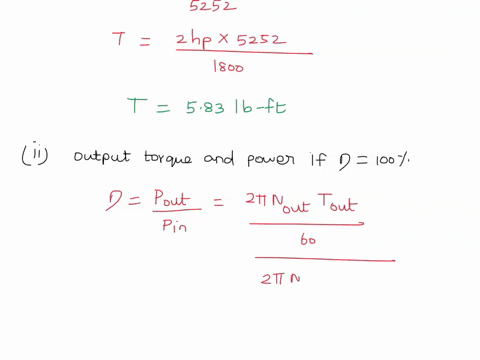 5252
T = 2hp × 5252
1800
T = 5.83 lb-ft
(ii) output torque and power if D = 100%
D = Pout = 2πNout Tout
Pin
60
2πN